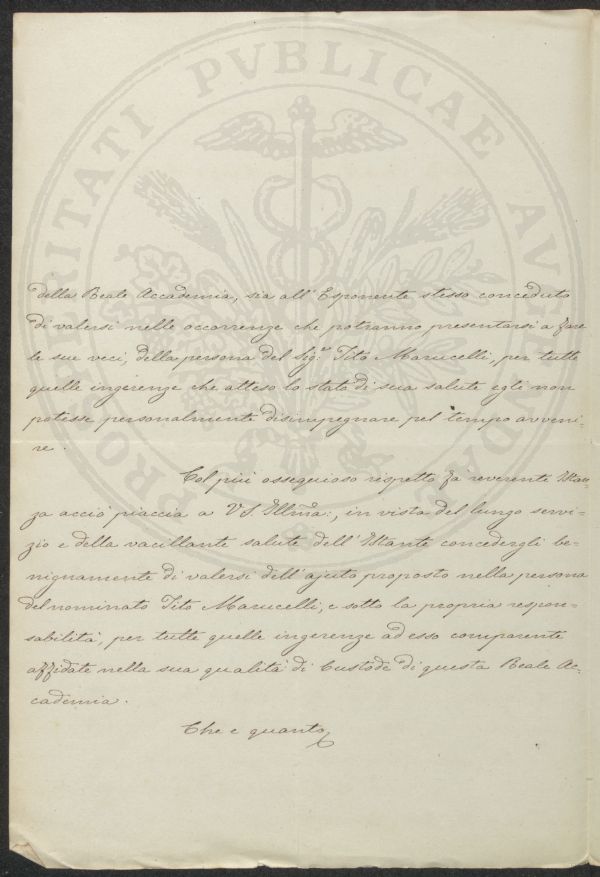 PROSPERITATI PVBLICAE AVGENDAE
della Reale Accademia, sia all'Esponente stesso conceduto
di valersi nelle occorrenze che potranno presentarsi a fare
le sue veci, della persona del Sig.re Tito Marucelli, per tutte
quelle ingerenze che atteso lo stato di sua salute egli non
potesse personalmente disimpegnare pel tempo avveni-
re.
Col più ossequioso rispetto fa reverente Istan-
za acciò piaccia a VS. Illma:, in vista del lungo servi-
zio e della vacillante salute dell'Istante concedergli be-
nignamente di valersi dell'ajuto proposto nella persona
del nominato Tito Marucelli, e sotto la propria respon-
sabilità, per tutte quelle ingerenze ad esso comparente
affidate nella sua qualità di Custode di questa Reale Ac-
cademia.
Che e quanto